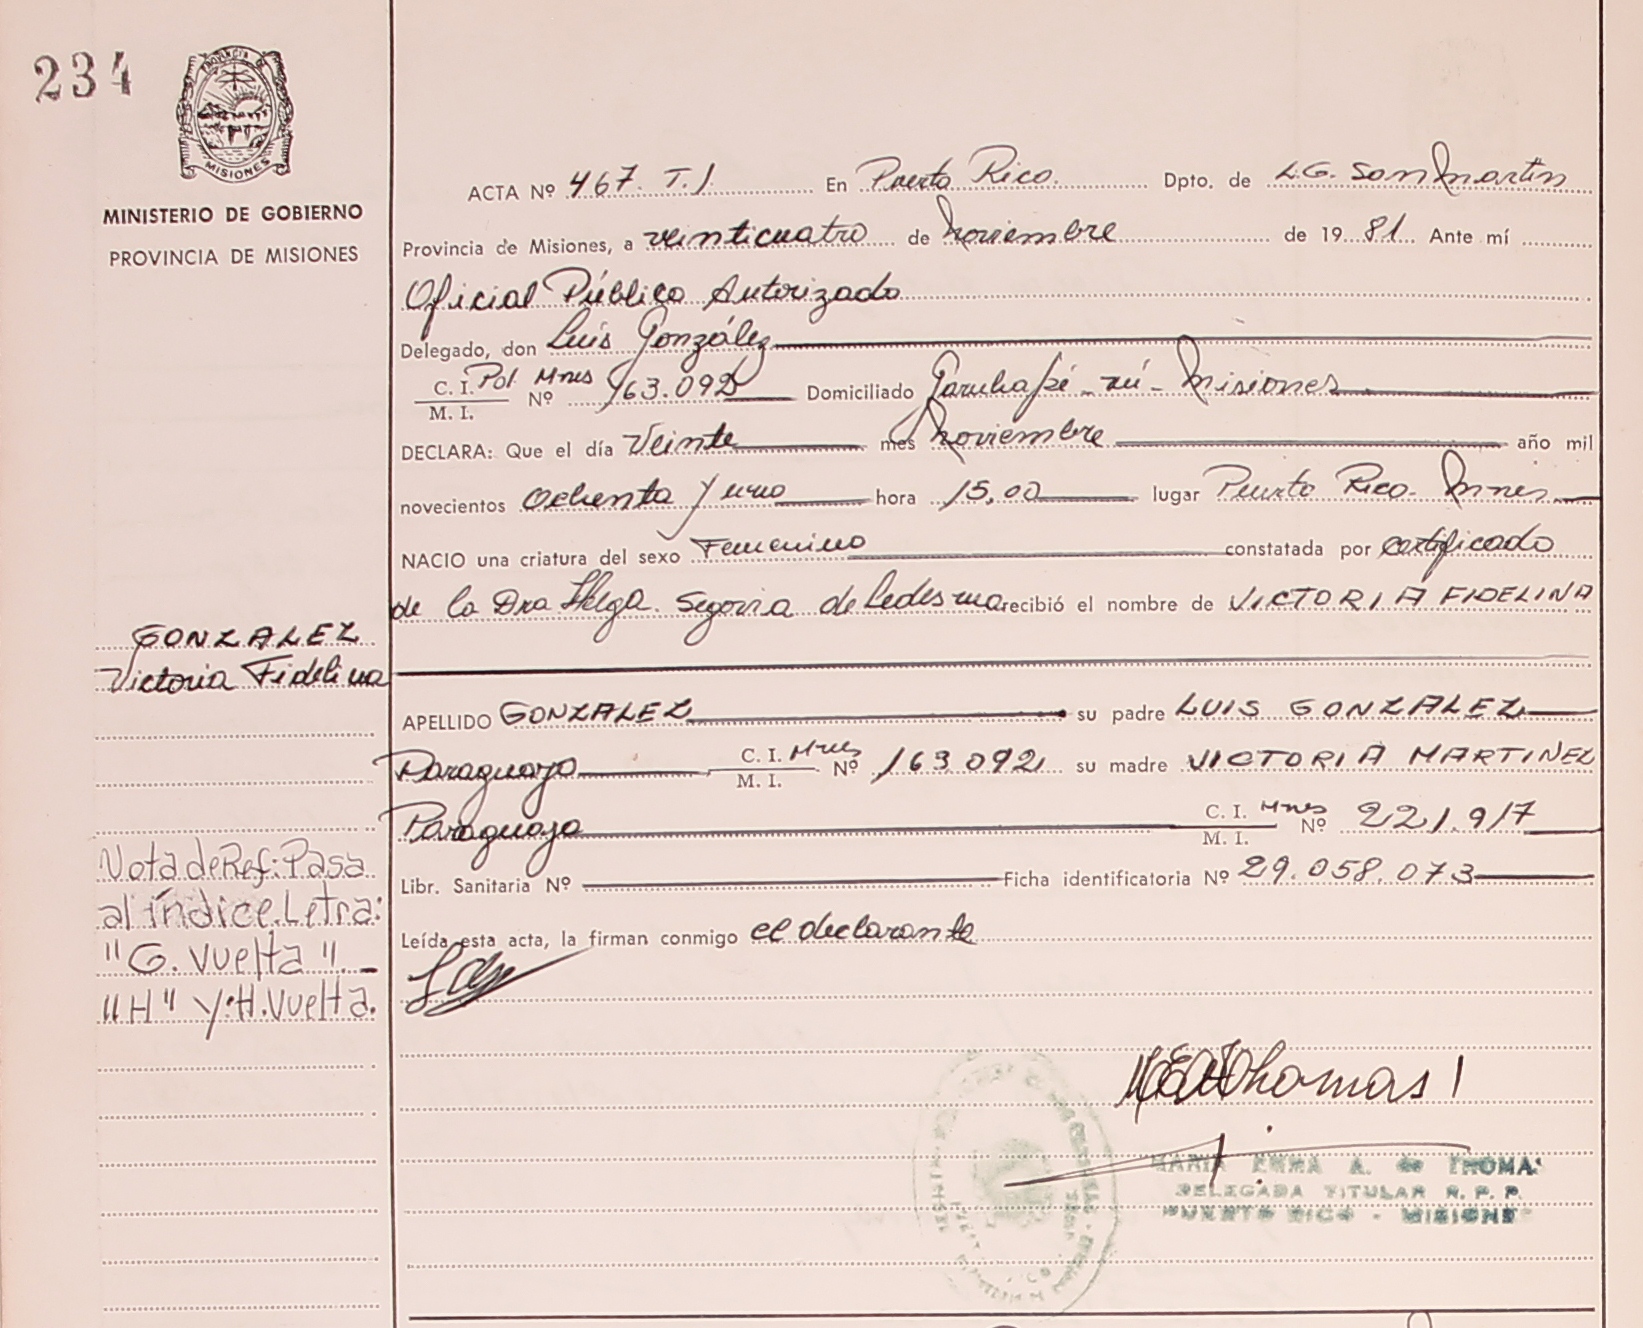 234
PROVINCIA DE
MISIONES
MINISTERIO DE GOBIERNO
PROVINCIA DE MISIONES
ACTA Nº 467. T.I. En Puerto Rico. Dpto. de L.G. San Martin
Provincia de Misiones, a veinticuatro de noviembre de 1981. Ante mí
Oficial Público Autorizado
Delegado, don Luis González
C. I. Pol. Mnes Nº 163.092 Domiciliado Garuhapé-mí-Misiones
M. I.
DECLARA: Que el día Veinte mes noviembre año mil
novecientos ochenta y uno hora 15,00 lugar Puerto Rico. Mnes
NACIO una criatura del sexo Femenino constatada por certificado
de la Dra Helga Segovia de Ledesma recibió el nombre de VICTORIA FIDELINA
GONZALEZ
Victoria Fidelina
APELLIDO GONZALEZ su padre LUIS GONZALEZ
Paraguayo C. I. Mnes Nº 163.092 su madre VICTORIA MARTINEZ
M. I.
Paraguaya C. I. Mnes Nº 221.917
M. I.
Libr. Sanitaria Nº Ficha identificatoria Nº 29.058.073
Leída esta acta, la firman conmigo el declarante
Nota de Ref: Pasa
al índice. Letra:
"G. Vuelta".
"H" y H. Vuelta.
Thomas
MARIA EMMA A. de THOMAS
DELEGADA TITULAR R. P. P.
PUERTO RICO - MISIONES